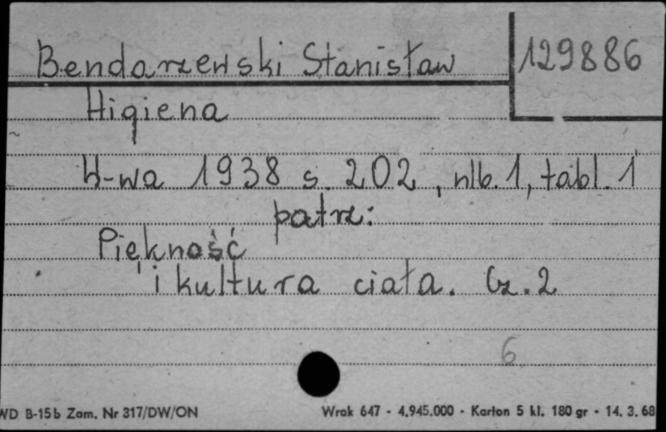 Bendarzewski Stanisław
129886
Higiena
W-wa 1938 s. 202, nlb. 1, tabl. 1
patrz:
Piękność
i kultura ciała. Cz. 2
6
WD B-15b Zam. Nr 317/DW/ON Wrak 647 - 4.945.000 - Karton 5 kl. 180 gr - 14. 3. 68